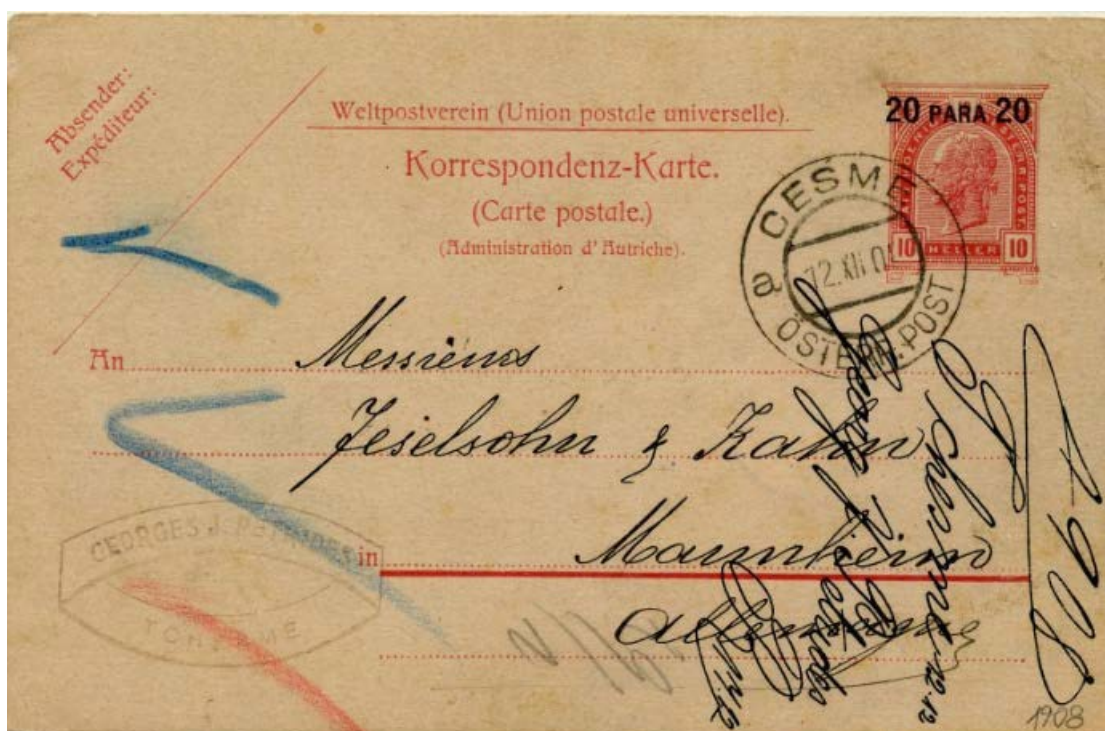 Absender:
Expéditeur:
Weltpostverein (Union postale universelle).
Korrespondenz-Karte.
(Carte postale.)
(Administration d'Autriche).
20 PARA 20
10 HELLER 10
a CESME
12.XII.0
ÖSTERR. POST
An Messieurs
Jeselsohn & Kahn
in Mannheim
Allemagne
GEORGES J.
TCHESME
1908
Tchesme 12.12
Georg
1908